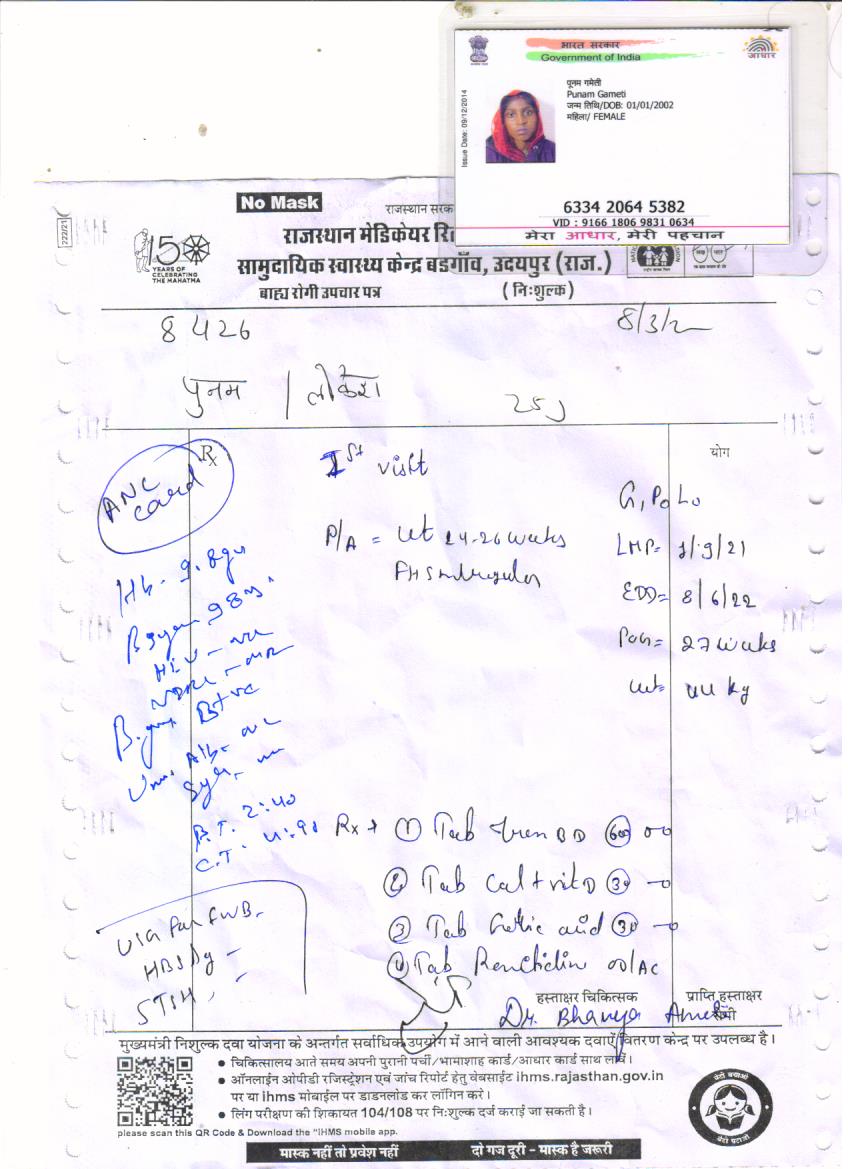 भारत सरकार
Government of India
आधार
Issue Date: 09/12/2014
पूनम गमेती
Punam Gameti
जन्म तिथि/DOB: 01/01/2002
महिला/ FEMALE
6334 2064 5382
VID : 9166 1806 9831 0634
मेरा आधार, मेरी पहचान
No Mask
222/21
राजस्थान सरक
राजस्थान मेडिकेयर रि
150
YEARS OF
CELEBRATING
THE MAHATMA
सामुदायिक स्वास्थ्य केन्द्र बडगाँव, उदयपुर (राज.)
बाह्य रोगी उपचार पत्र (निःशुल्क)
8426 8/3/2
पुनम / लोकेश 25y
Rx योग
ANC
card
1st visit
G1P0L0
P/A = ut 24-26 weeks
LMP= 1/9/21
FHS
EDD= 8/6/22
POG= 27 weeks
wt= 44 kg
Hb - 9.8gm
98
HIV -
VDRL -
B. B+ve
Alb-
B.T. 2:40
C.T.
Rx
① Tab Iron BD 60 OD
② Tab Cal + vitD 30
③ Tab acid 30
④ Tab OD/AC
USG for FWB
HBSAg
STSH
हस्ताक्षर चिकित्सक प्राप्ति हस्ताक्षर
Dr. Bhavya
मुख्यमंत्री निशुल्क दवा योजना के अन्तर्गत सर्वाधिक उपयोग में आने वाली आवश्यक दवाऐं वितरण केन्द्र पर उपलब्ध है।
● चिकित्सालय आते समय अपनी पुरानी पर्ची/भामाशाह कार्ड/आधार कार्ड साथ लावें।
● ऑनलाईन ओपीडी रजिस्ट्रेशन एवं जांच रिपोर्ट हेतु वेबसाईट ihms.rajasthan.gov.in
पर या ihms मोबाईल पर डाउनलोड कर लॉगिन करे।
● लिंग परीक्षण की शिकायत 104/108 पर निःशुल्क दर्ज कराई जा सकती है।
please scan this QR Code & Download the "IHMS mobile app.
बेटी बचाओ
बेटी पढ़ाओ
मास्क नहीं तो प्रवेश नहीं दो गज दूरी - मास्क है जरूरी